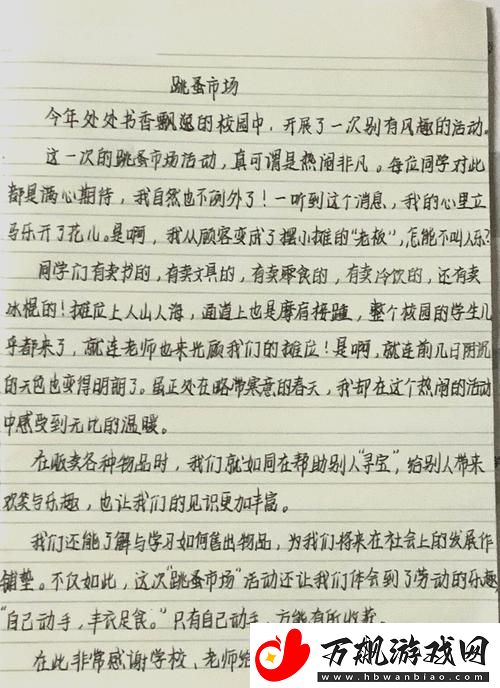 跳蚤市场
今年处处书香飘逸的校园中，开展了一次别有风趣的活动。
这一次的跳蚤市场活动，真可谓是热闹非凡。每位同学对此
都是满心期待，我自然也不例外了！一听到这个消息，我的心里立
马乐开了花儿。是啊，我从顾客变成了摆小摊的“老板”，怎能不叫人乐？
同学们有卖书的，有卖文具的，有卖零食的，有卖冷饮的，还有卖
冰棍的！摊位上人山人海，通道上也是摩肩接踵，整个校园的学生几
乎都来了，就连老师也来光顾我们的摊位！是啊，就连前几日阴沉
的天色也变得明朗了。虽正处在略带寒意的春天，我却在这个热闹的活动
中感受到无比的温暖。
在贩卖各种物品时，我们就如同在帮助别人“寻宝”，给别人带来
欢笑与乐趣，也让我们的见识更加丰富。
我们还能了解与学习如何售出物品，为我们将来在社会上的发展作
铺垫。不仅如此，这次“跳蚤市场”活动还让我们体会到了劳动的乐趣
“自己动手，丰衣足食。”只有自己动手，方能有所收获。
在此非常感谢学校、老师给
万飙游戏网
www.hbwanbiao.com